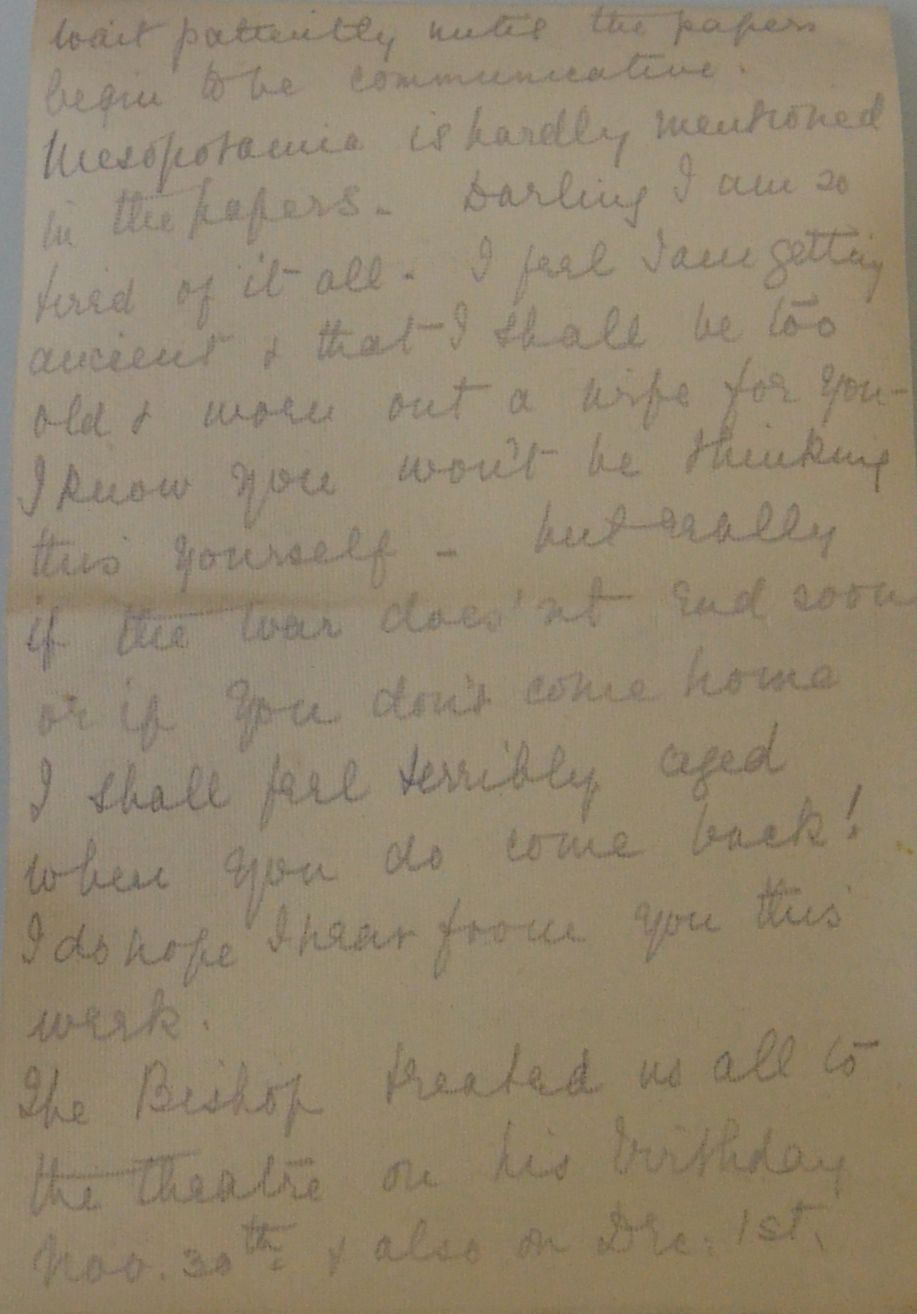 wait patiently until the papers
begin to be communicative.
Mesopotamia is hardly mentioned
in the papers. Darling I am so
tired of it all. I feel I am getting
ancient & that I shall be too
old & worn out a wife for you -
I know you won't be thinking
this yourself - but really
if the war does'nt end soon
or if you don't come home
I shall feel terribly aged
when you do come back!
I do hope I hear from you this
week.
The Bishop treated us all to
the theatre on his birthday
Nov. 30th. & also on Dec. 1st.